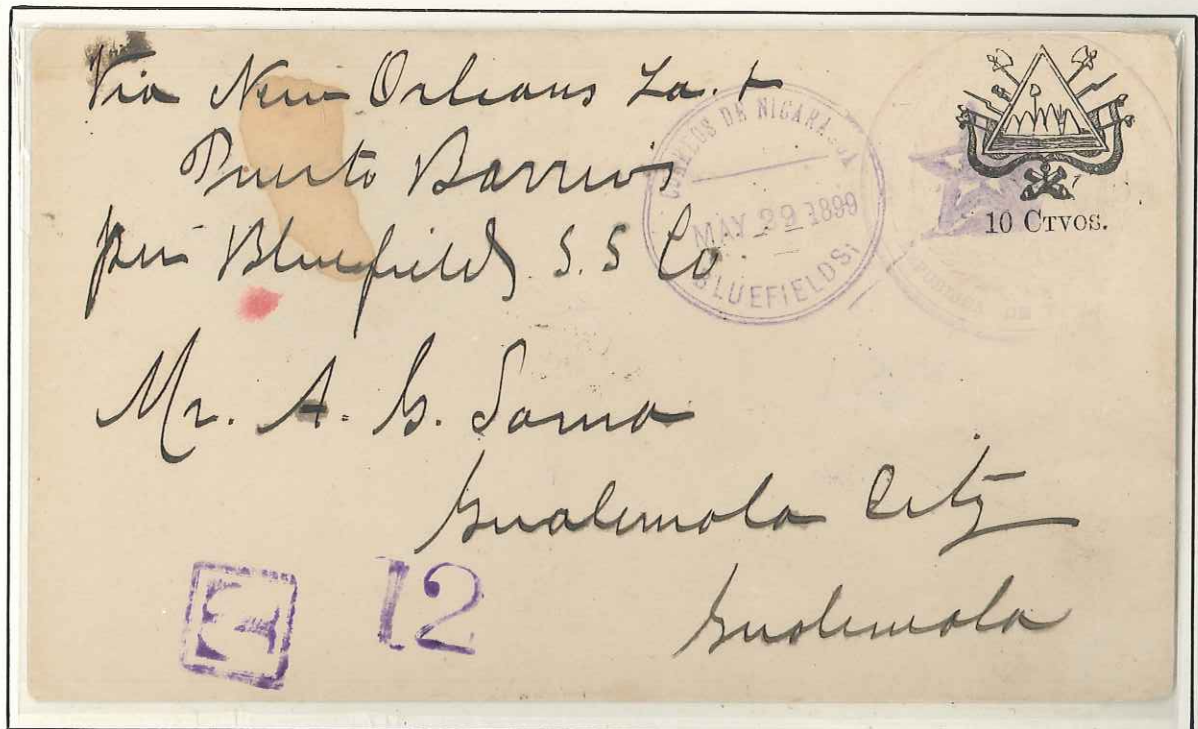 Via New Orleans La. &
Puerto Barrios
per Bluefields S.S Co
CORREOS DE NICARAGUA
MAY 29 1899
BLUEFIELDS.
10 CTVOS.
REPUBLICA DE
Mr. A. G.
Guatemala City
Guatemala
12